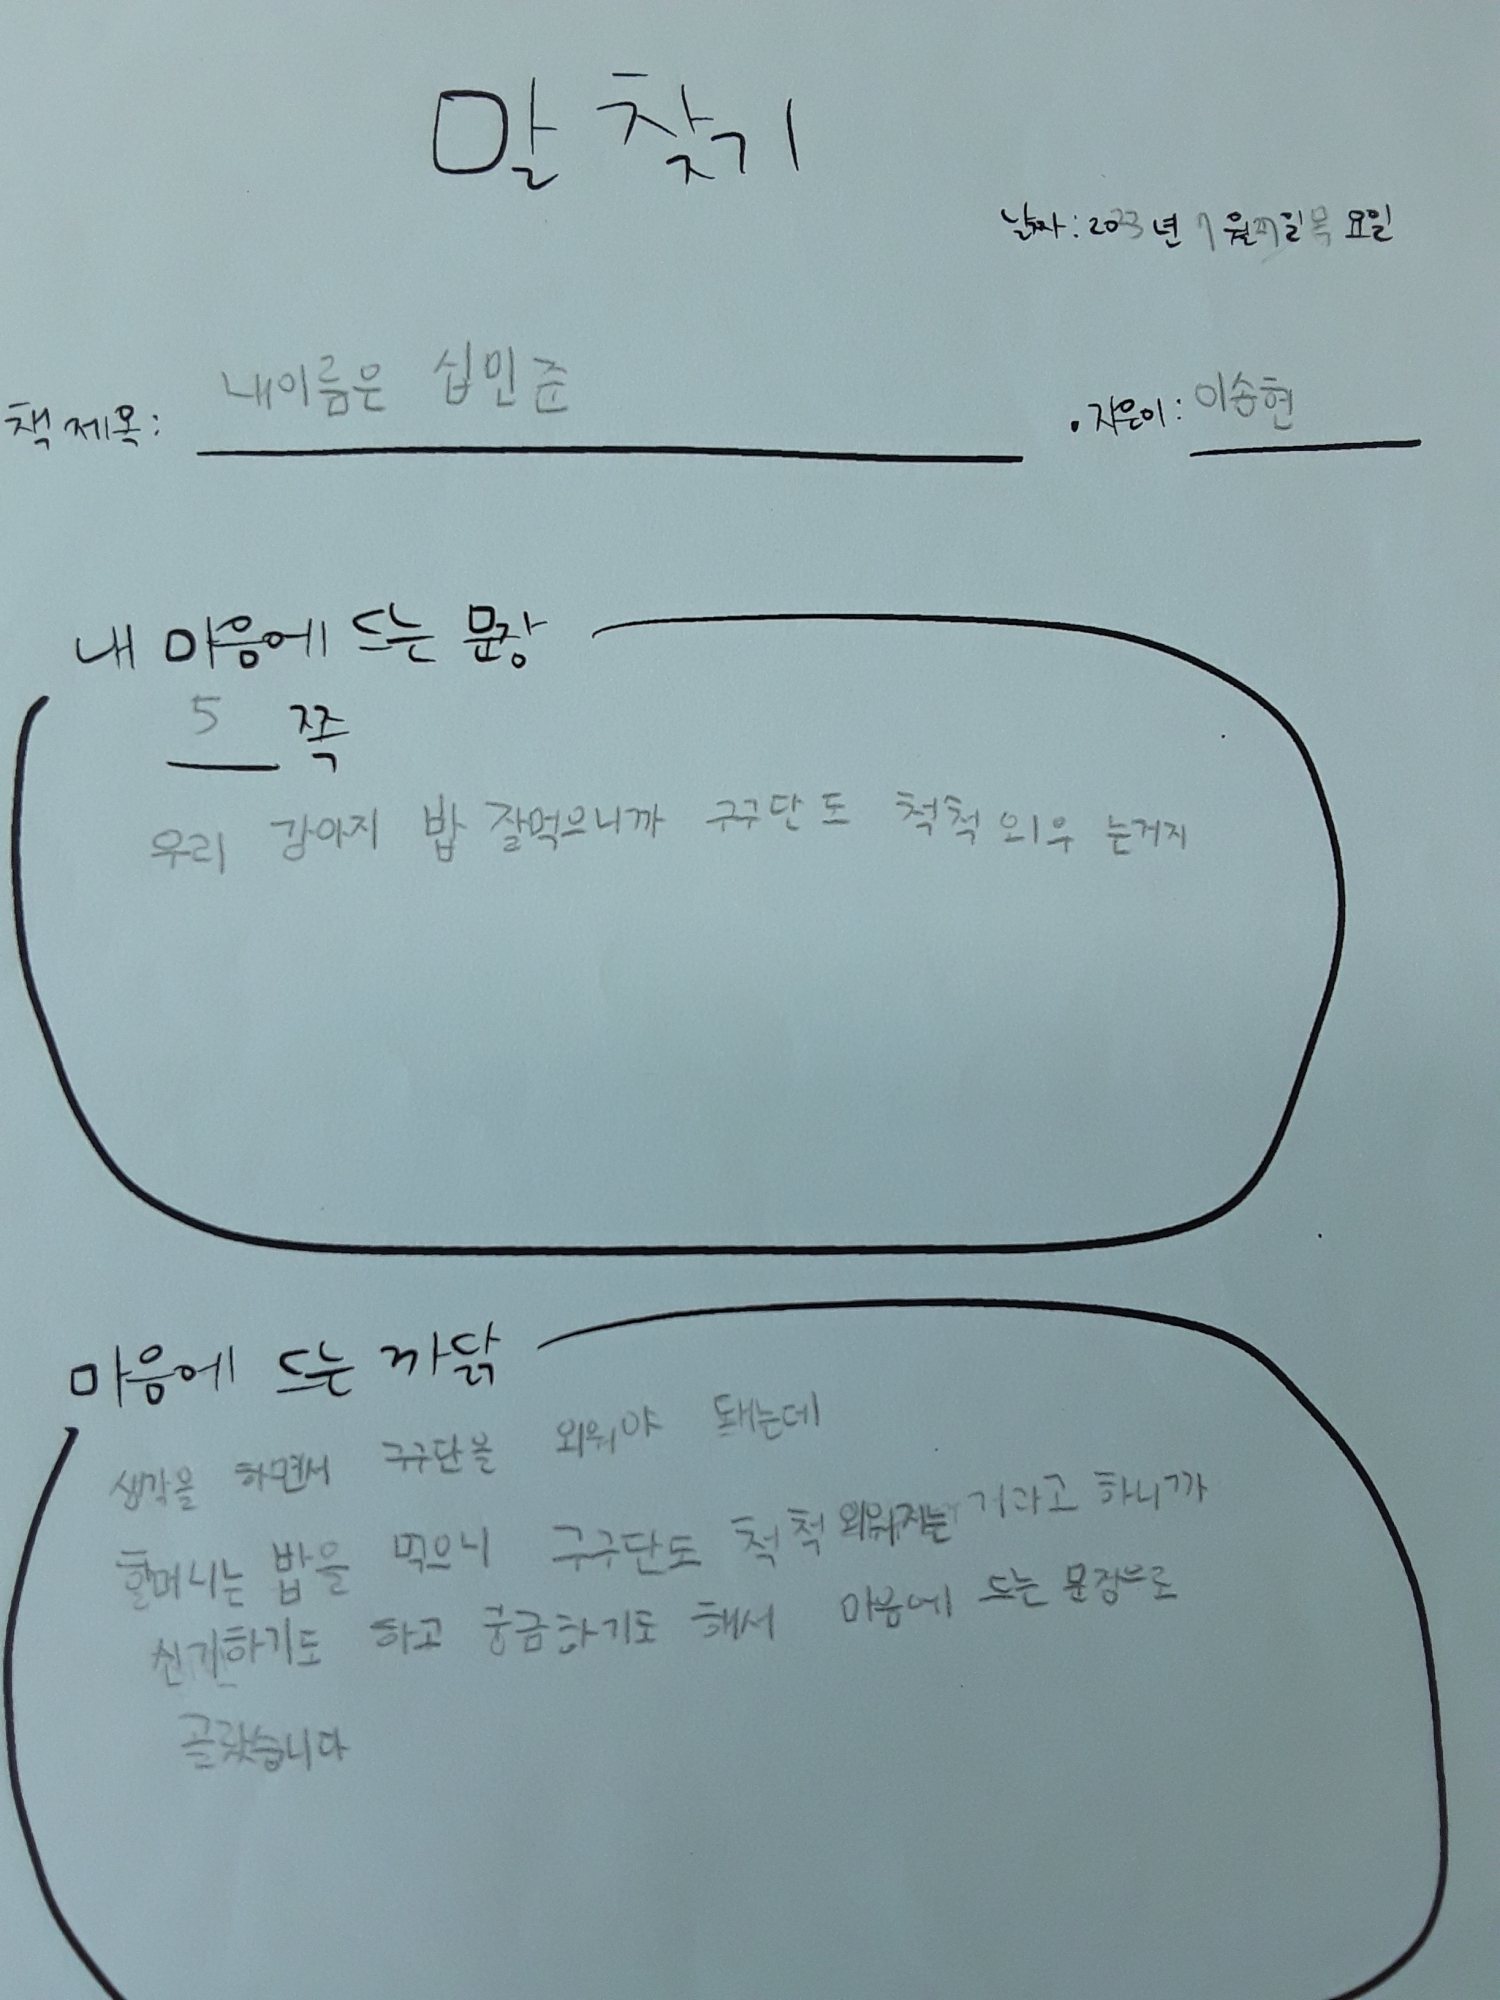 말 찾기
날짜: 2023년 7월 27일 목요일
책 제목: 내이름은 십민준
• 지은이: 이송현
내 마음에 드는 문장
5 쪽
우리 강아지 밥 잘먹으니까 구구단도 척척 외우 는거지
마음에 드는 까닭
생각을 하면서 구구단을 외워야 돼는데
할머니는 밥을 먹으니 구구단도 척척 외워지는 거라고 하니까
신기하기도 하고 궁금하기도 해서 마음에 드는 문장으로
골랐습니다